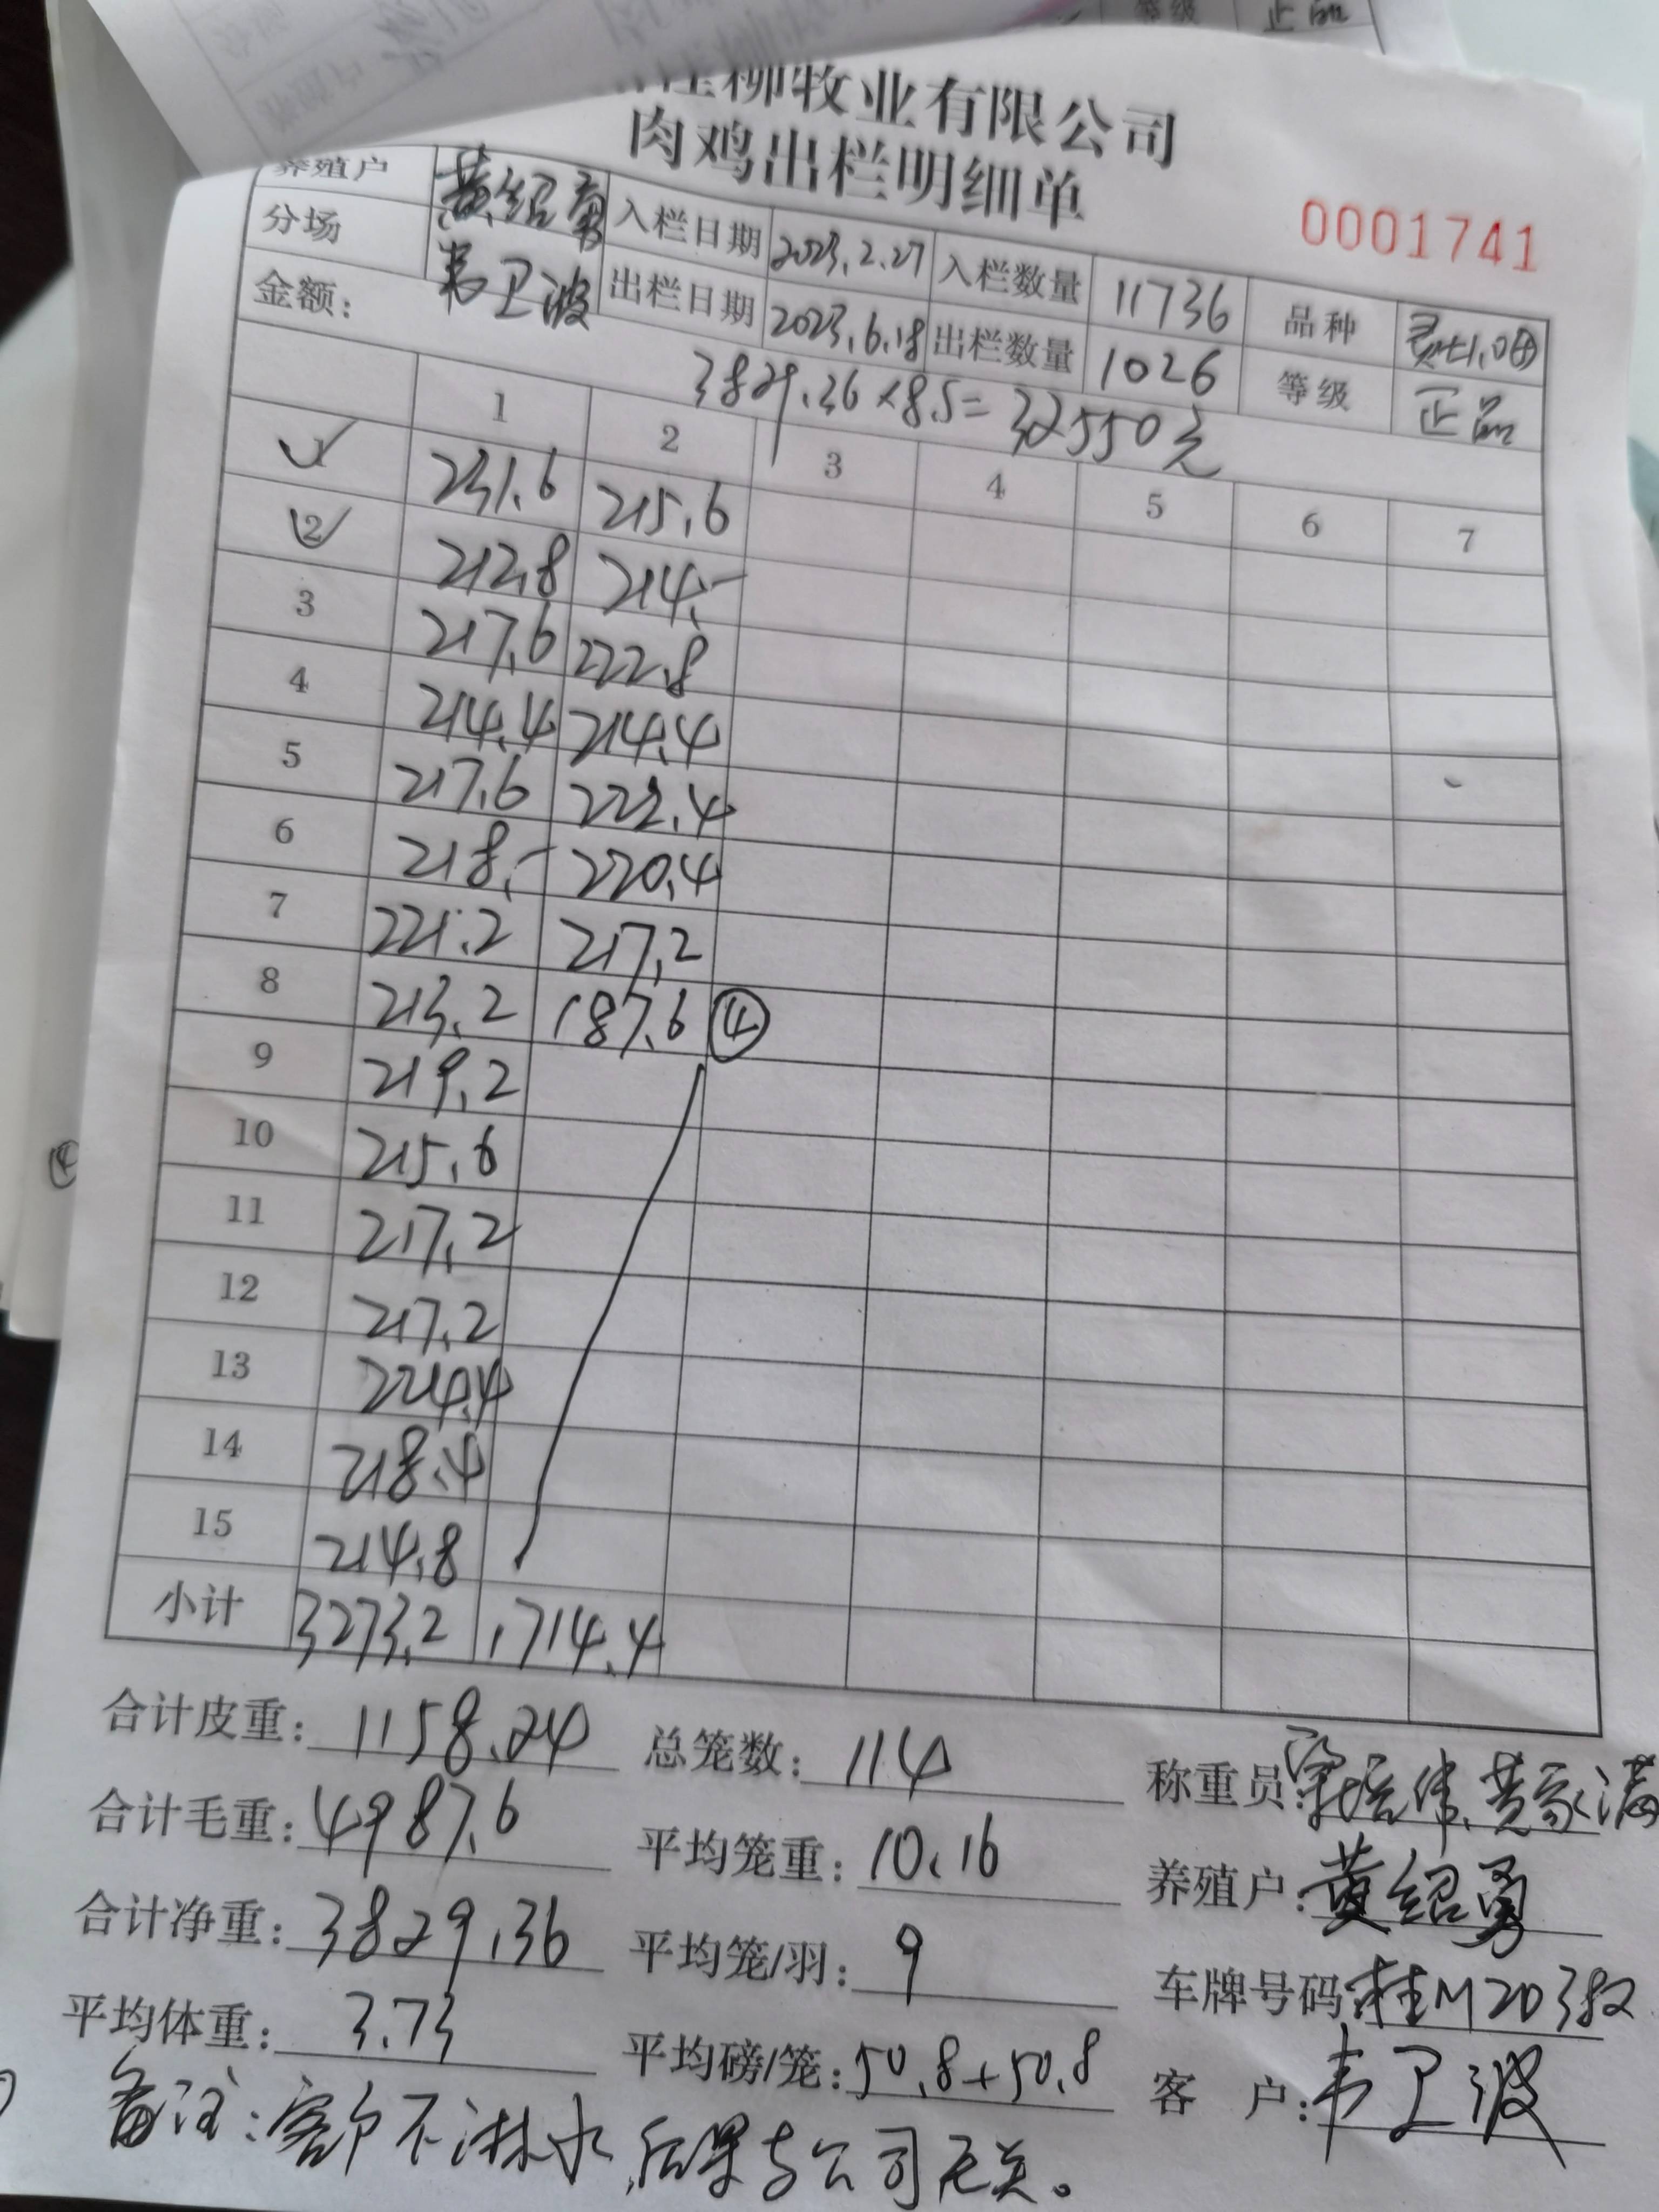 桂柳牧业有限公司
肉鸡出栏明细单
0001741
养殖户 黄绍勇 入栏日期 2023.2.27 入栏数量 11736 品种
分场 韦卫波 出栏日期 2023.6.18 出栏数量 1026 等级 正品
金额: 3829.36×8.5=32550元
1 2 3 4 5 6 7
1 231.6 215.6
2 212.8 214.-
3 217.6 222.8
4 214.4 214.4
5 217.6 222.4
6 218.- 220.4
7 221.2 217.2
8 213.2 187.6 ④
9 219.2
10 215.6
11 217.2
12 217.2
13 224.4
14 218.4
15 214.8
小计 3273.2 1714.4
合计皮重: 1158.24 总笼数: 114 称重员: 黄家满
合计毛重: 4987.6 平均笼重: 10.16 养殖户: 黄绍勇
合计净重: 3829.36 平均笼/羽: 9 车牌号码 桂M203
平均体重: 3.73 平均磅/笼: 50.8+50.8 客 户: 韦卫波
备注: 客户不淋水,后果与公司无关。
等级 正品